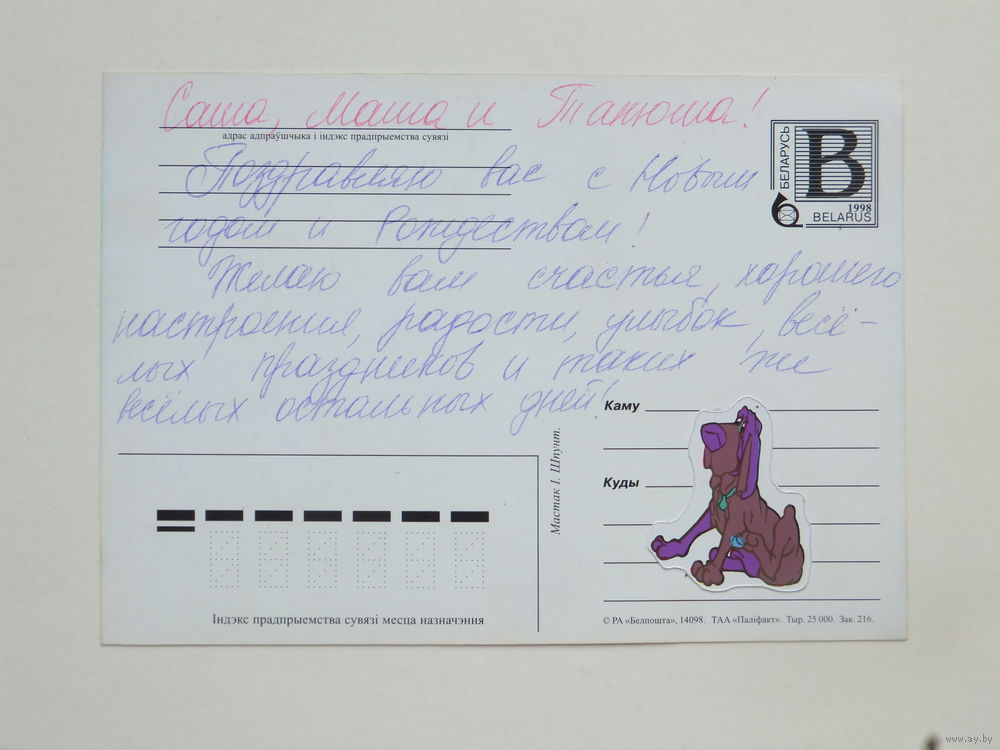 Саша, Маша и Танюша!
адрас адпраўшчыка і індэкс прадпрыемства сувязі
Поздравляю вас с Новым
годом и Рождеством!
Желаю вам счастья, хорошего
настроения, радости, улыбок, весё-
лых праздников и таких же
весёлых остальных дней!
БЕЛАРУСЬ
B
1998
BELARUS
Каму
Куды
Мастак І. Шпунт.
Індэкс прадпрыемства сувязі месца назначэння
© РА «Белпошта», 14098. ТАА «Паліфакт». Тыр. 25 000. Зак. 216.
www.ay.by